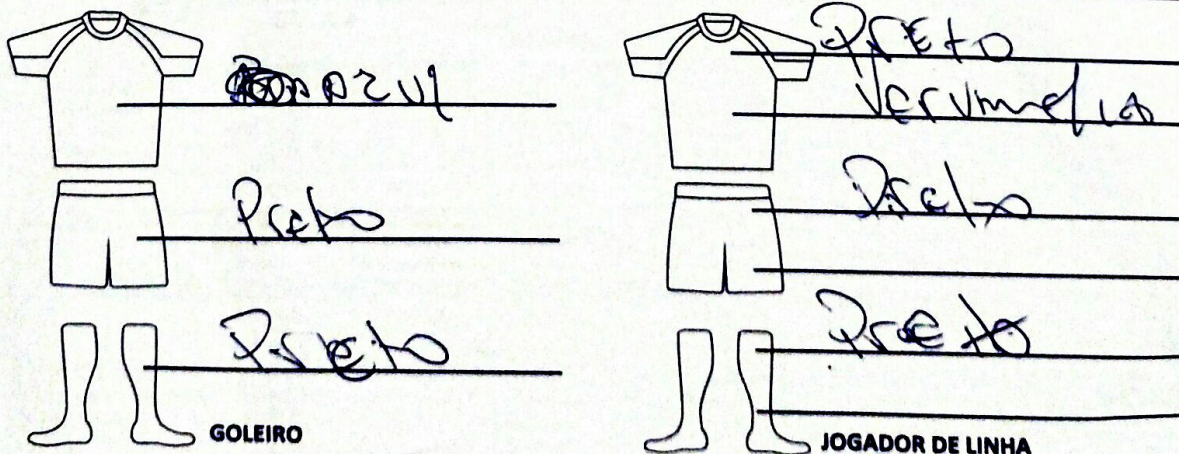 Azul
Preto
Preto
GOLEIRO
Preto
Vervmelho
Preto
Preto
JOGADOR DE LINHA